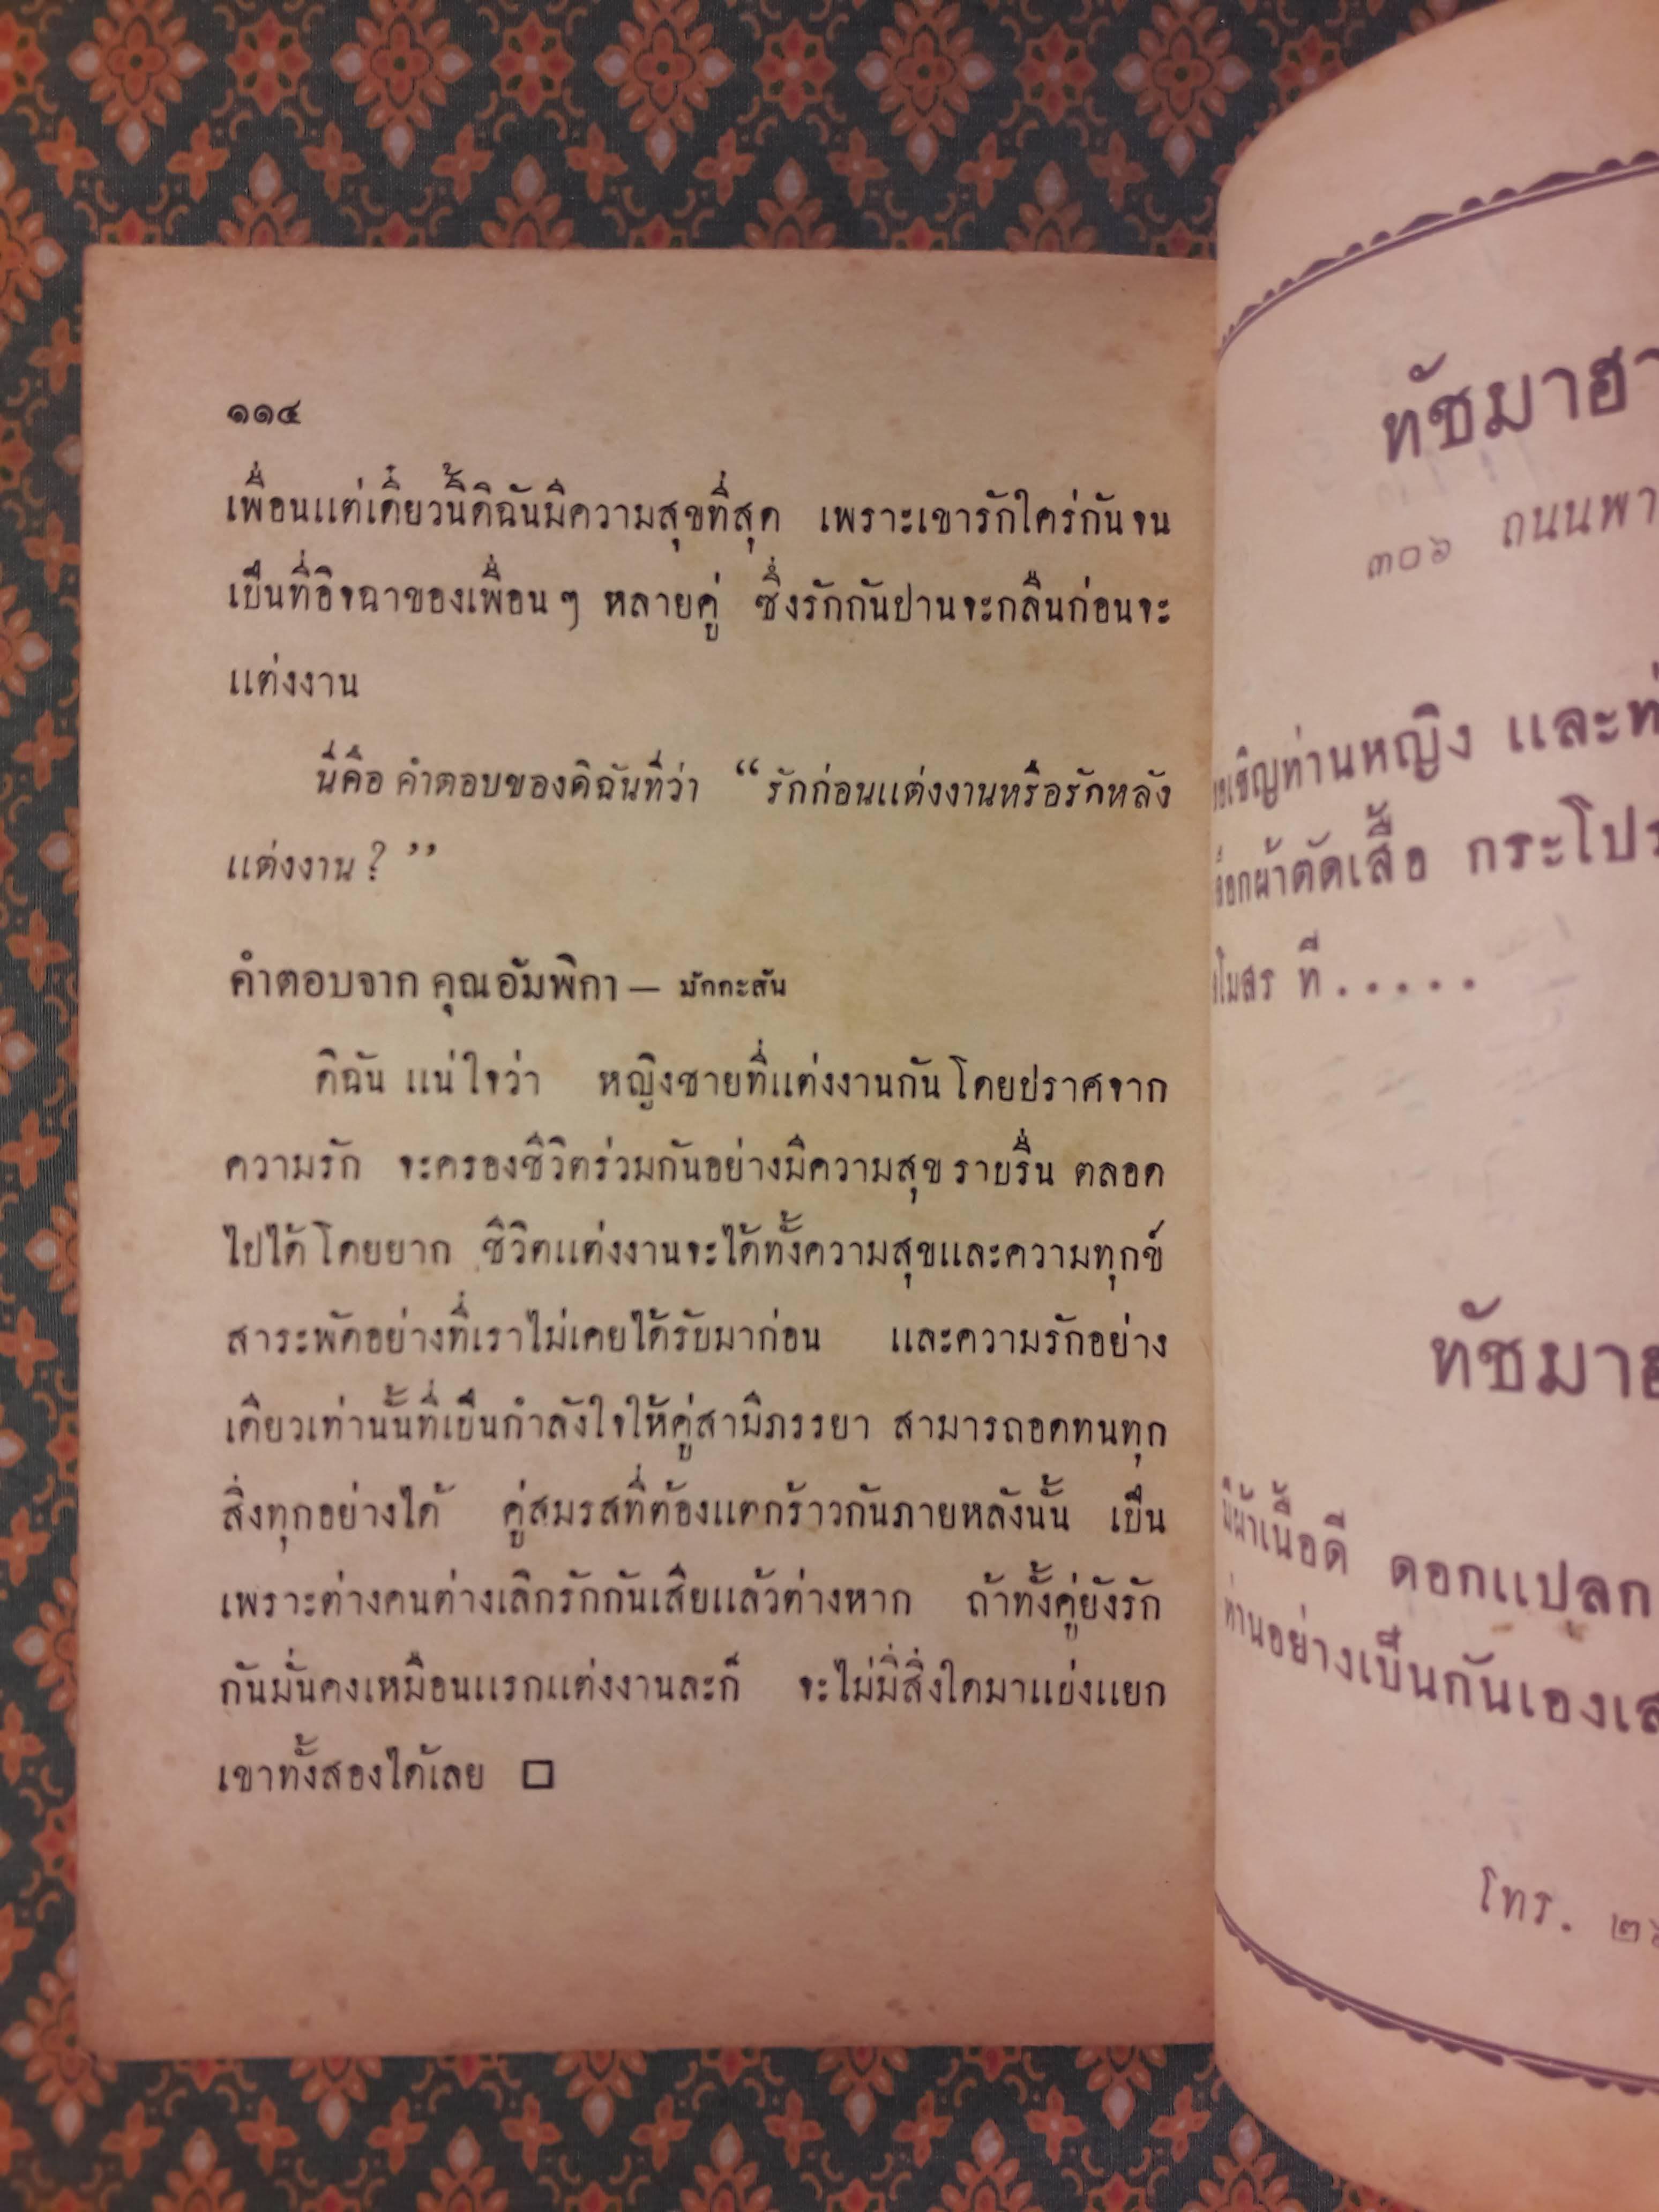 ๑๑๔
เพื่อนแต่เดี๋ยวนี้ดิฉันมีความสุขที่สุด เพราะเขารักใคร่กันจน
เป็นที่อิจฉาของเพื่อน ๆ หลายคู่ ซึ่งรักกันปานจะกลืนก่อนจะ
แต่งงาน
นี่คือ คำตอบของดิฉันที่ว่า “รักก่อนแต่งงานหรือรักหลัง
แต่งงาน ? ”
คำตอบจาก คุณอัมพิกา — มักกะสัน
ดิฉัน แน่ใจว่า หญิงชายที่แต่งงานกัน โดยปราศจาก
ความรัก จะครองชีวิตร่วมกันอย่างมีความสุข ราบรื่น ตลอด
ไปได้ โดยยาก ชีวิตแต่งงานจะได้ทั้งความสุขและความทุกข์
สาระพัดอย่างที่เราไม่เคยได้รับมาก่อน และความรักอย่าง
เดียวเท่านั้นที่เป็นกำลังใจให้คู่สามิภรรยา สามารถอดทนทุก
สิ่งทุกอย่างได้ คู่สมรสที่ต้องแตกร้าวกันภายหลังนั้น เป็น
เพราะต่างคนต่างเลิกรักกันเสียแล้วต่างหาก ถ้าทั้งคู่ยังรัก
กันมั่นคงเหมือนแรกแต่งงานละก็ จะไม่มีสิ่งใดมาแย่งแยก
เขาทั้งสองได้เลย
ทัชมาฮา
๓๐๖ ถนนพา
เชิญท่านหญิง และท่
ผ้าตัดเสื้อ กระโปร
โมสร ที่ . . . . . .
ทัชมาฮ
ผ้าเนื้อดี ดอกแปลก
ท่านอย่างเป็นกันเองเส
โทร. ๒๖